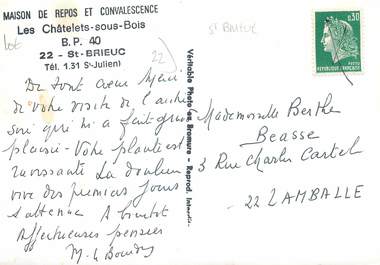 MAISON DE REPOS ET CONVALESCENCE
Les Châtelets-sous-Bois
B.P. 40
22 - St-BRIEUC
Tél. 1.31 S^t-Julien)
Lot
22
St BRIEUC
0,30
POSTES
REPUBLIQUE FRANÇAISE
De tout cœur Merci
de votre visite de l'autre
soir qui m'a fait grand
plaisir - Votre plante est
ravissante La douleur
vive des premiers jours
s'atténue A bientôt
Affectueuses pensées
Véritable Photo au Bromure - Reprod. Interdite.
Mademoiselle Berthe
Beasse
3 Rue Charles Cartel
22 LAMBALLE